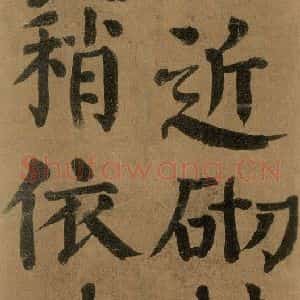 近砌
稍依
Shufawang.CN